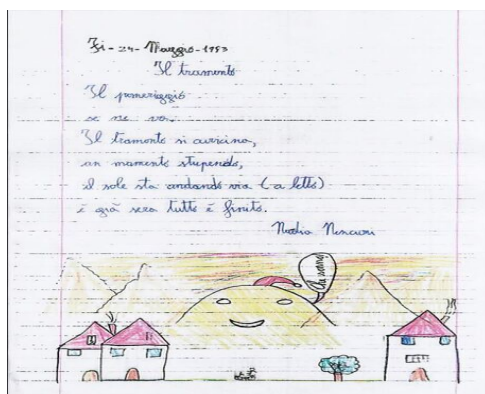 Fi-24-Maggio-1993
Il tramonto
Il pomeriggio
se ne va.
Il tramonto si avvicina,
un momento stupendo,
il sole sta andando via (a letto)
è già sera tutto è finito.
Nadia